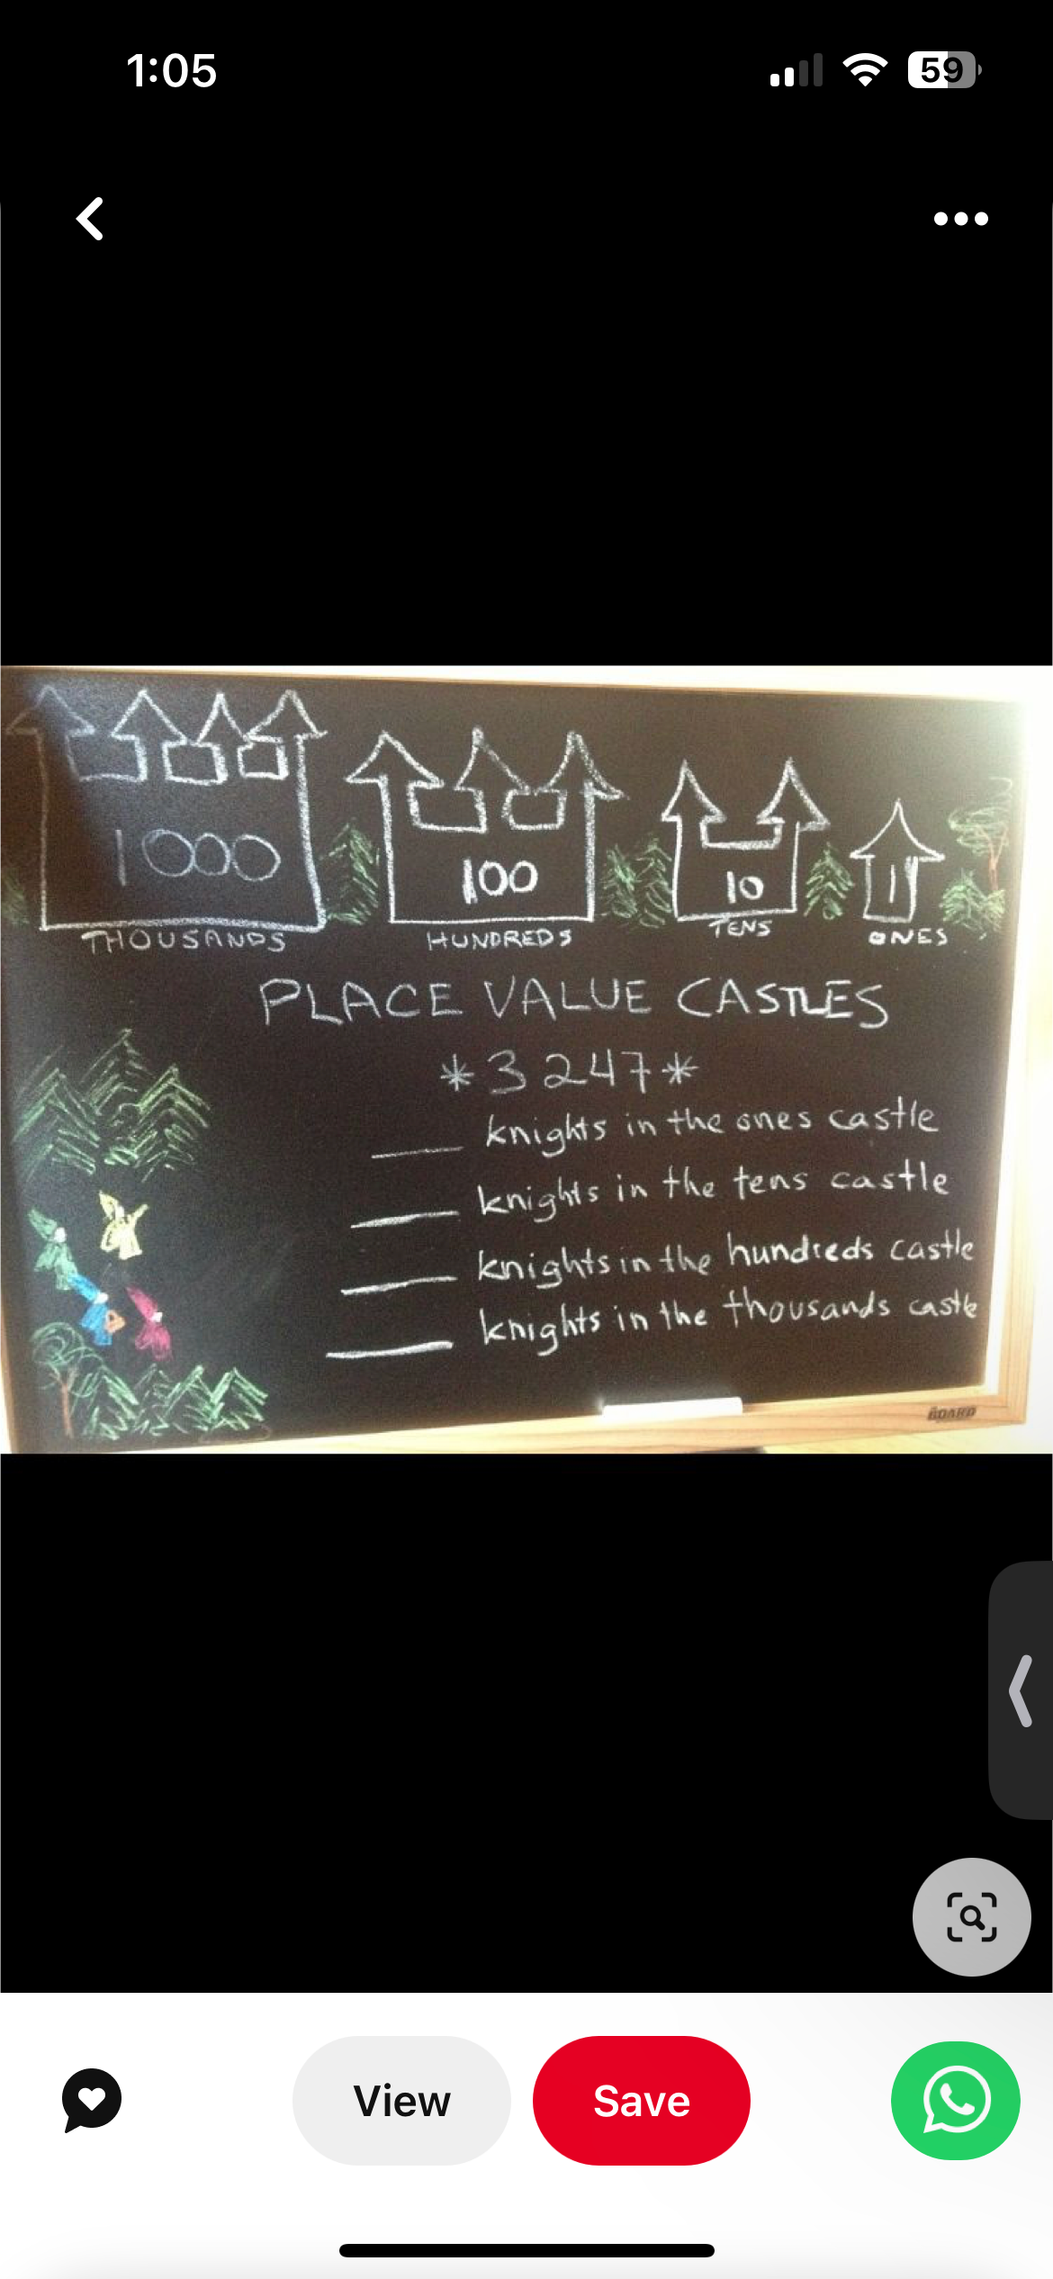 1:05
59
1000
100
10
1
THOUSANDS
HUNDREDS
TENS
ONES
PLACE VALUE CASTLES
*3247*
___ knights in the ones castle
___ knights in the tens castle
___ knights in the hundreds castle
___ knights in the thousands castle
BOARD
View
Save